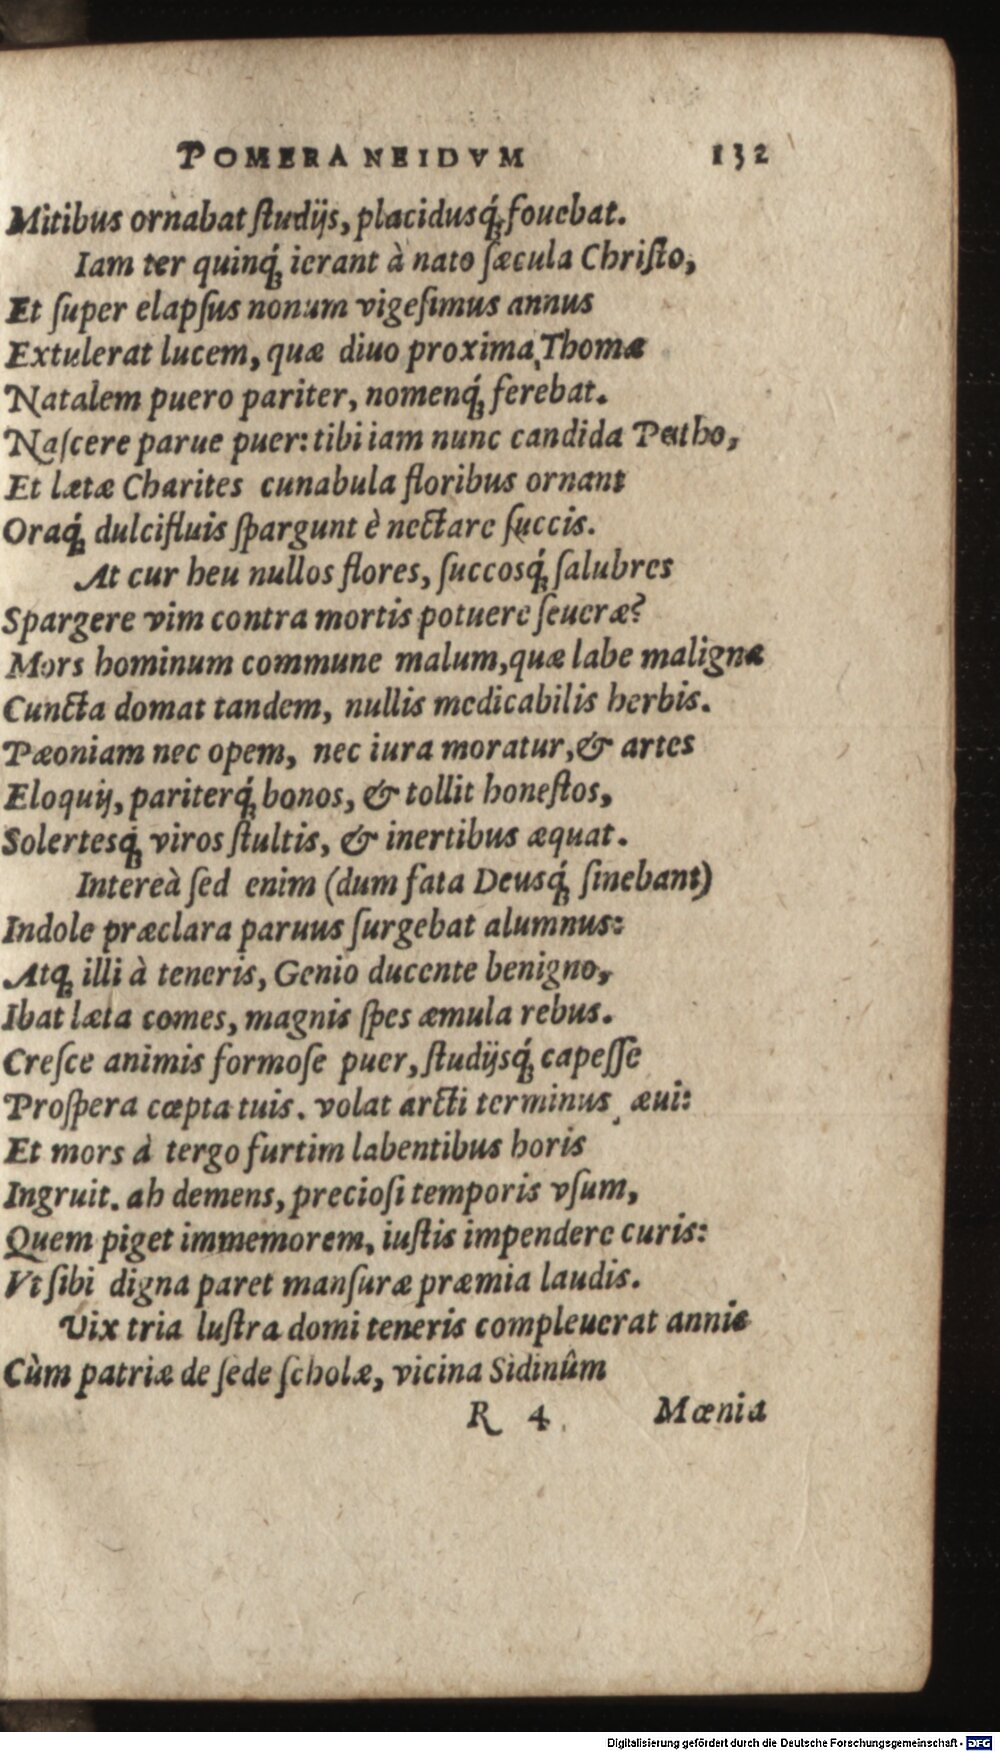 POMERANEIDVM 132
Mitibus ornabat ſtudijs, placidusq́ꝫ fouebat.
Iam ter quinq́ꝫ ierant à nato ſæcula Chriſto,
Et ſuper elapſus nonum vigeſimus annus
Extulerat lucem, quæ diuo proxima Thomæ
Natalem puero pariter, nomenq́ꝫ ferebat.
Naſcere parue puer: tibi iam nunc candida Peitho,
Et lætæ Charites cunabula floribus ornant
Oraq́ꝫ dulcifluis ſpargunt è nectare ſuccis.
At cur heu nullos flores, ſuccosq́ꝫ ſalubres
Spargere vim contra mortis potuere ſeueræ?
Mors hominum commune malum, quæ labe maligna
Cuncta domat tandem, nullis medicabilis herbis.
Pæoniam nec opem, nec iura moratur, & artes
Eloquij, pariterq́ꝫ bonos, & tollit honeſtos,
Solertesq́ꝫ viros ſtultis, & inertibus æquat.
Intereà ſed enim (dum fata Deusq́ꝫ ſinebant)
Indole præclara paruus ſurgebat alumnus:
Atqꝫ illi à teneris, Genio ducente benigno,
Ibat læta comes, magnis ſpes æmula rebus.
Creſce animis formoſe puer, ſtudijsq́ꝫ capeſſe
Proſpera cœpta tuis. volat arcti terminus æui:
Et mors à tergo furtim labentibus horis
Ingruit. ah demens, precioſi temporis vſum,
Quem piget immemorem, iuſtis impendere curis:
Vt ſibi digna paret manſuræ præmia laudis.
Vix tria luſtra domi teneris compleuerat annis
Cùm patriæ de ſede ſcholæ, vicina Sidinûm
R 4 Mœnia
Digitalisierung gefördert durch die Deutsche Forschungsgemeinschaft - DFG